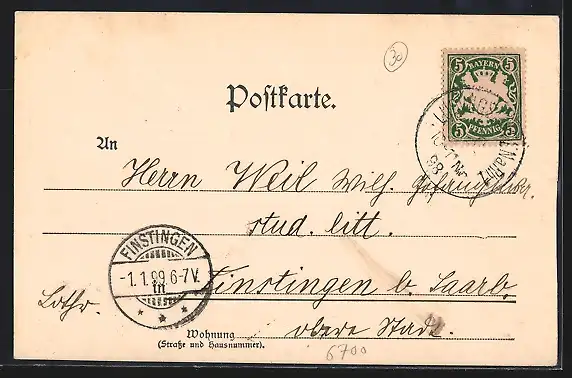 30
BAYERN
5 5
5 PFENNIG 5
Postkarte.
An
Herrn Weil Wilh.
stud. litt.
FINSTINGEN
-1.1.99 6-7V.
Finstingen b. Saarb.
Lothr.
obere Stadt.
Wohnung
(Straße und Hausnummer).
6700